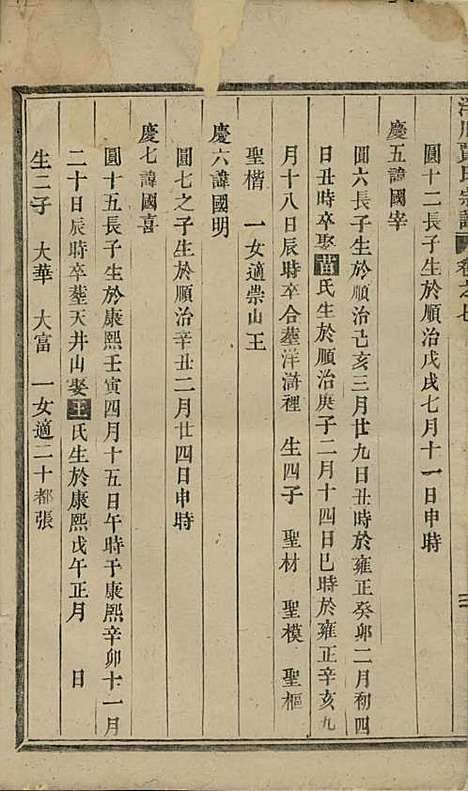 賈氏宗譜 卷之七
圓十二長子生於順治戊戌七月十一日申時
慶五諱國宰
圓六長子生於順治己亥三月廿九日丑時於雍正癸卯二月初四
日丑時卒娶苗氏生於順治庚子二月十四日巳時於雍正辛亥九
月十八日辰時卒合塟洋滸裡 生四子 聖材 聖模 聖樞
聖楷 一女適崇山王
慶六諱國明
圓七之子生於順治辛丑二月廿四日申時
慶七諱國喜
圓十五長子生於康熙壬寅四月十五日午時于康熙辛卯十一月
二十日辰時卒塟天井山娶王氏生於康熙戊午正月 日
生二子 大華 大富 一女適二十都張